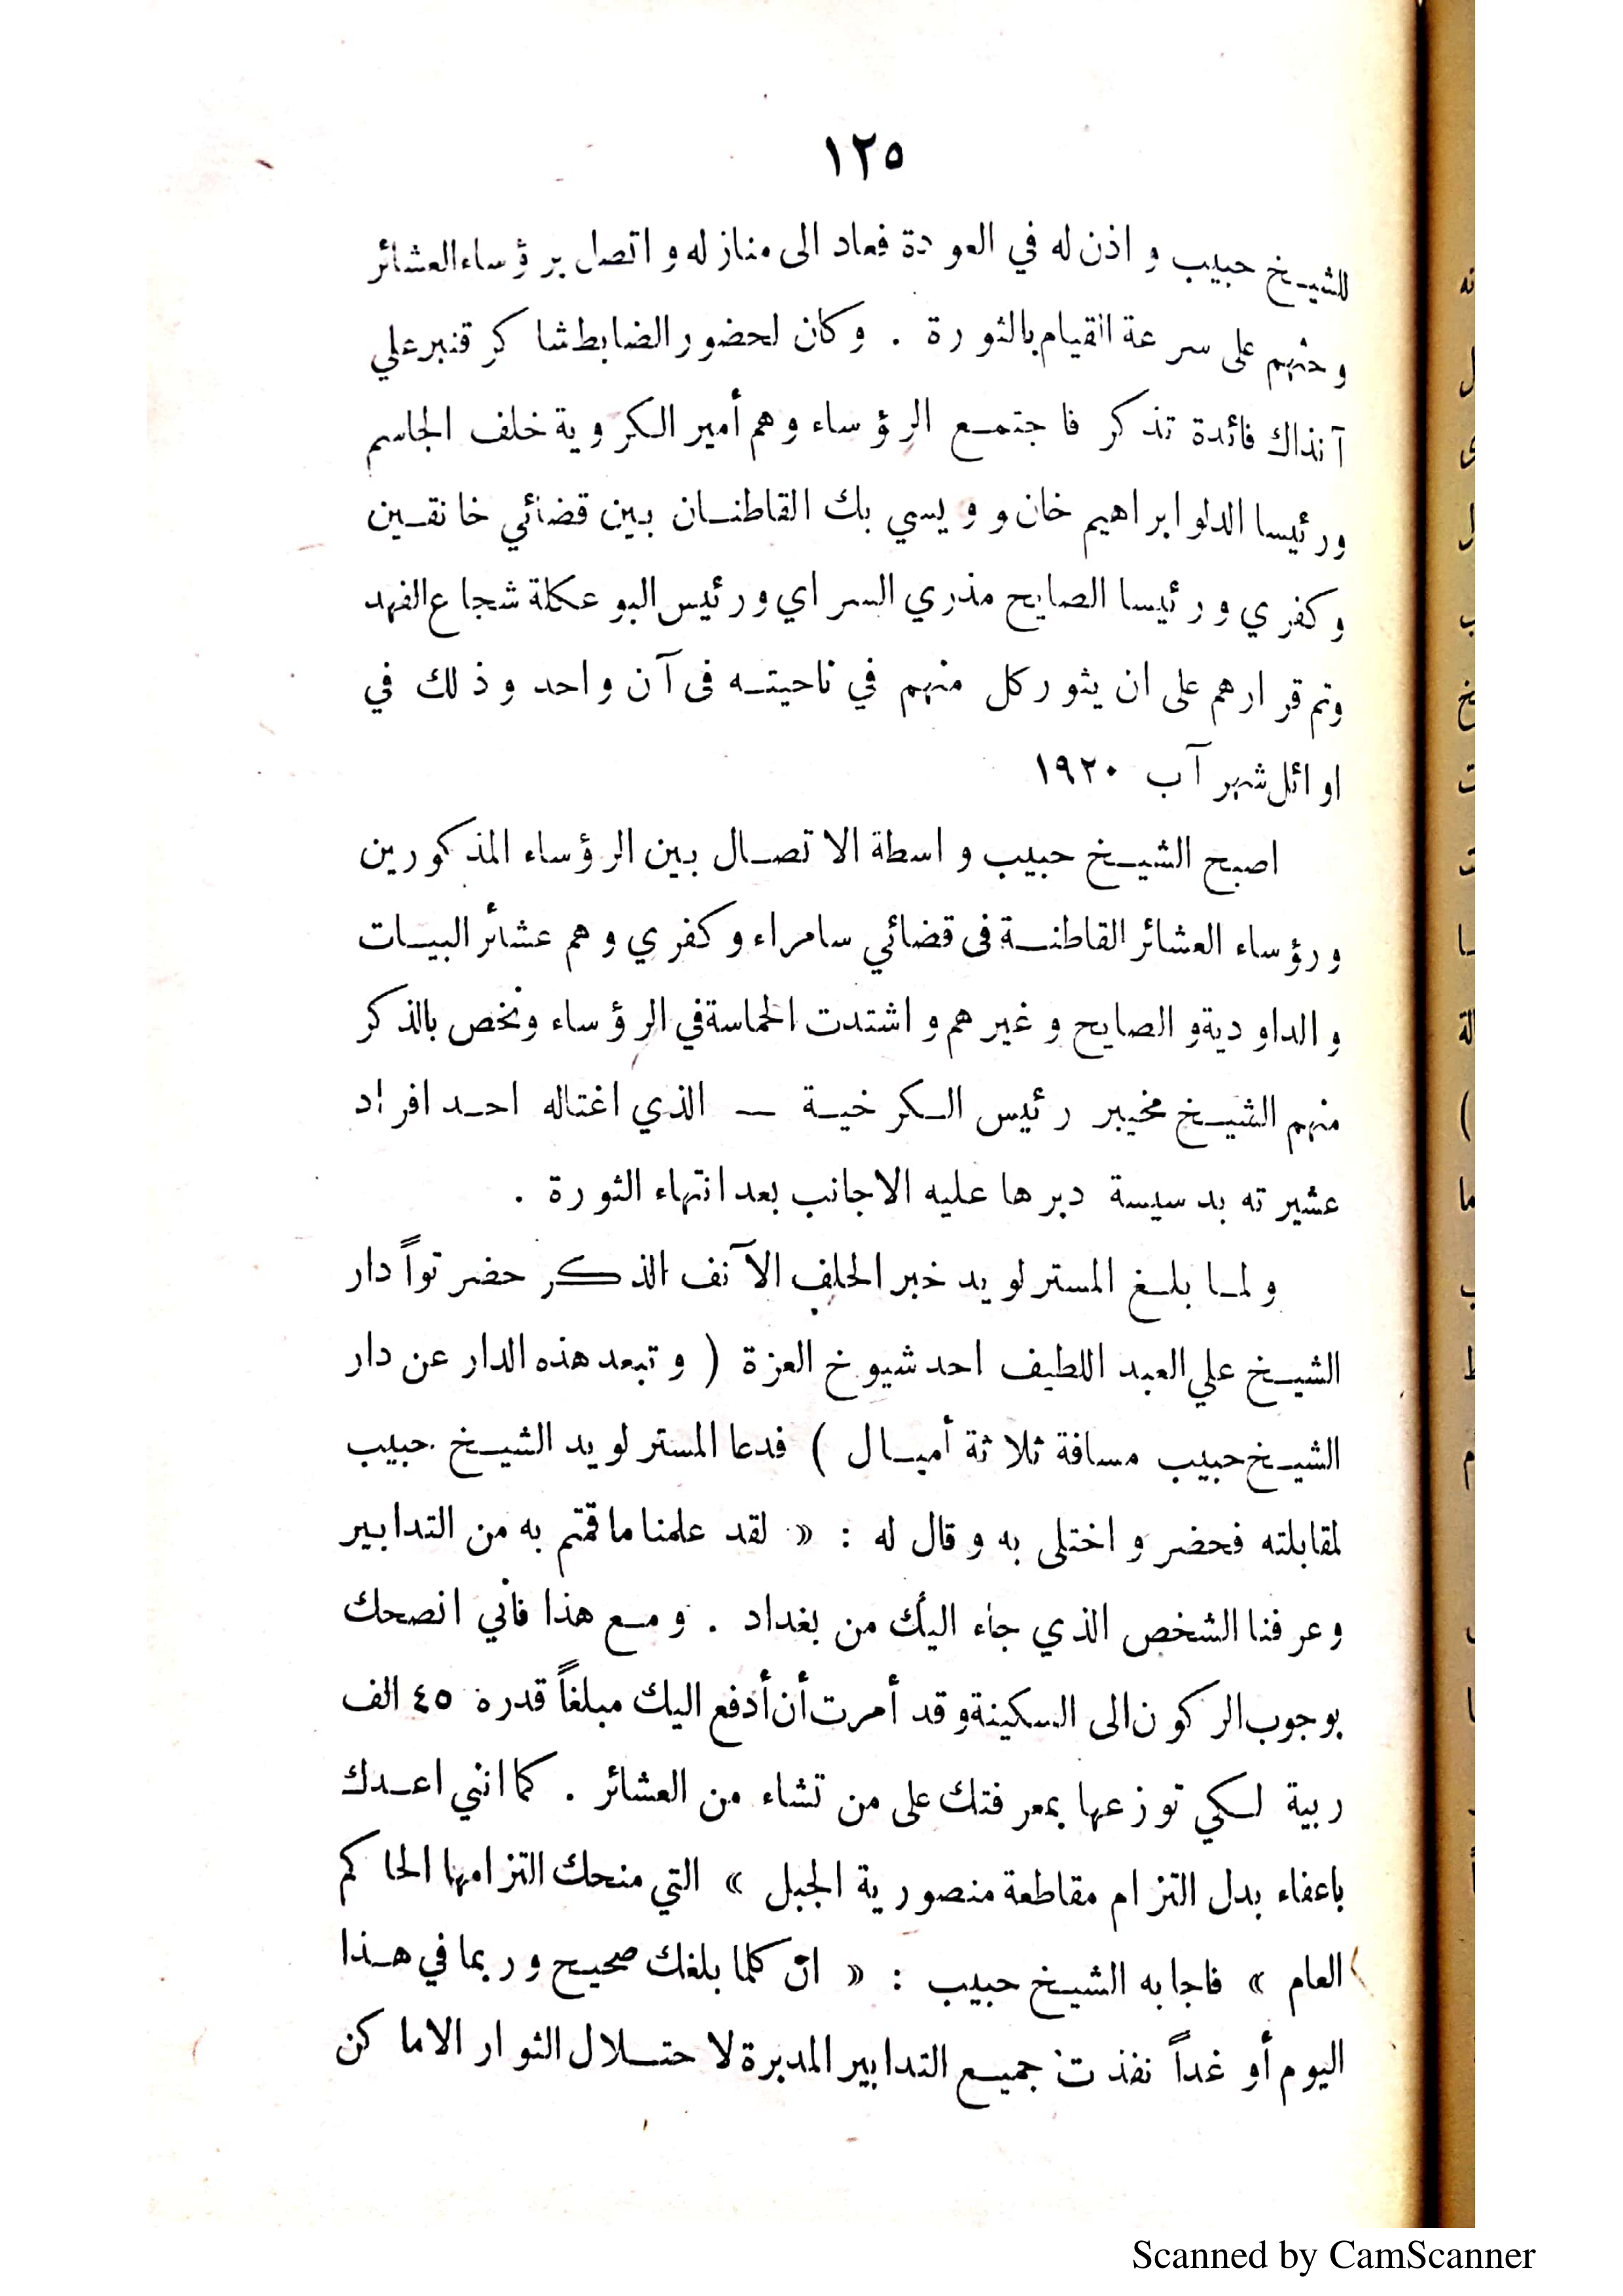 ١٢٥
للشيخ حبيب واذن له في العودة فعاد الى منازله واتصل برؤساء العشائر
وحثهم على سرعة القيام بالثورة . وكان لحضور الضابط شاكر قنبر علي
آنذاك فائدة تذكر فاجتمع الرؤساء وهم أمير الكروية خلف الجاسم
ورئيسا الدلو ابراهيم خان وويسي بك القاطنان بين قضائي خانقين
وكفري ورئيسا الصايح مذري السراي ورئيس البو عكلة شجاع الفهد
وتم قرارهم على ان يثور كل منهم في ناحيته فى آن واحد وذلك في
اوائل شهر آب ١٩٢٠
اصبح الشيخ حبيب واسطة الاتصال بين الرؤساء المذكورين
ورؤساء العشائر القاطنة فى قضائي سامراء وكفري وهم عشائر البيات
والداودية والصايح وغيرهم واشتدت الحماسة في الرؤساء ونخص بالذكر
منهم الشيخ مخيبر رئيس الكرخية — الذي اغتاله احد افراد
عشيرته بدسيسة دبرها عليه الاجانب بعد انتهاء الثورة .
ولما بلغ المستر لويد خبر الحلف الآنف الذكر حضر تواً دار
الشيخ علي العبد اللطيف احد شيوخ العزة ( وتبعد هذه الدار عن دار
الشيخ حبيب مسافة ثلاثة أميال ) فدعا المستر لويد الشيخ حبيب
لمقابلته فحضر واختلى به وقال له : « لقد علمنا ما قمتم به من التدابير
وعرفنا الشخص الذي جاء اليك من بغداد . ومع هذا فأني انصحك
بوجوب الركون الى السكينة وقد أمرت أن أدفع اليك مبلغاً قدره ٤٥ الف
ربية لكي توزعها بمعرفتك على من تشاء من العشائر . كما انني اعدك
باعفاء بدل التزام مقاطعة منصورية الجبل » التي منحك التزامها الحاكم
العام » فاجابه الشيخ حبيب : « ان كلما بلغك صحيح وربما في هذا
اليوم أو غداً نفذت جميع التدابير المدبرة لاحتلال الثوار الاماكن
Scanned by CamScanner